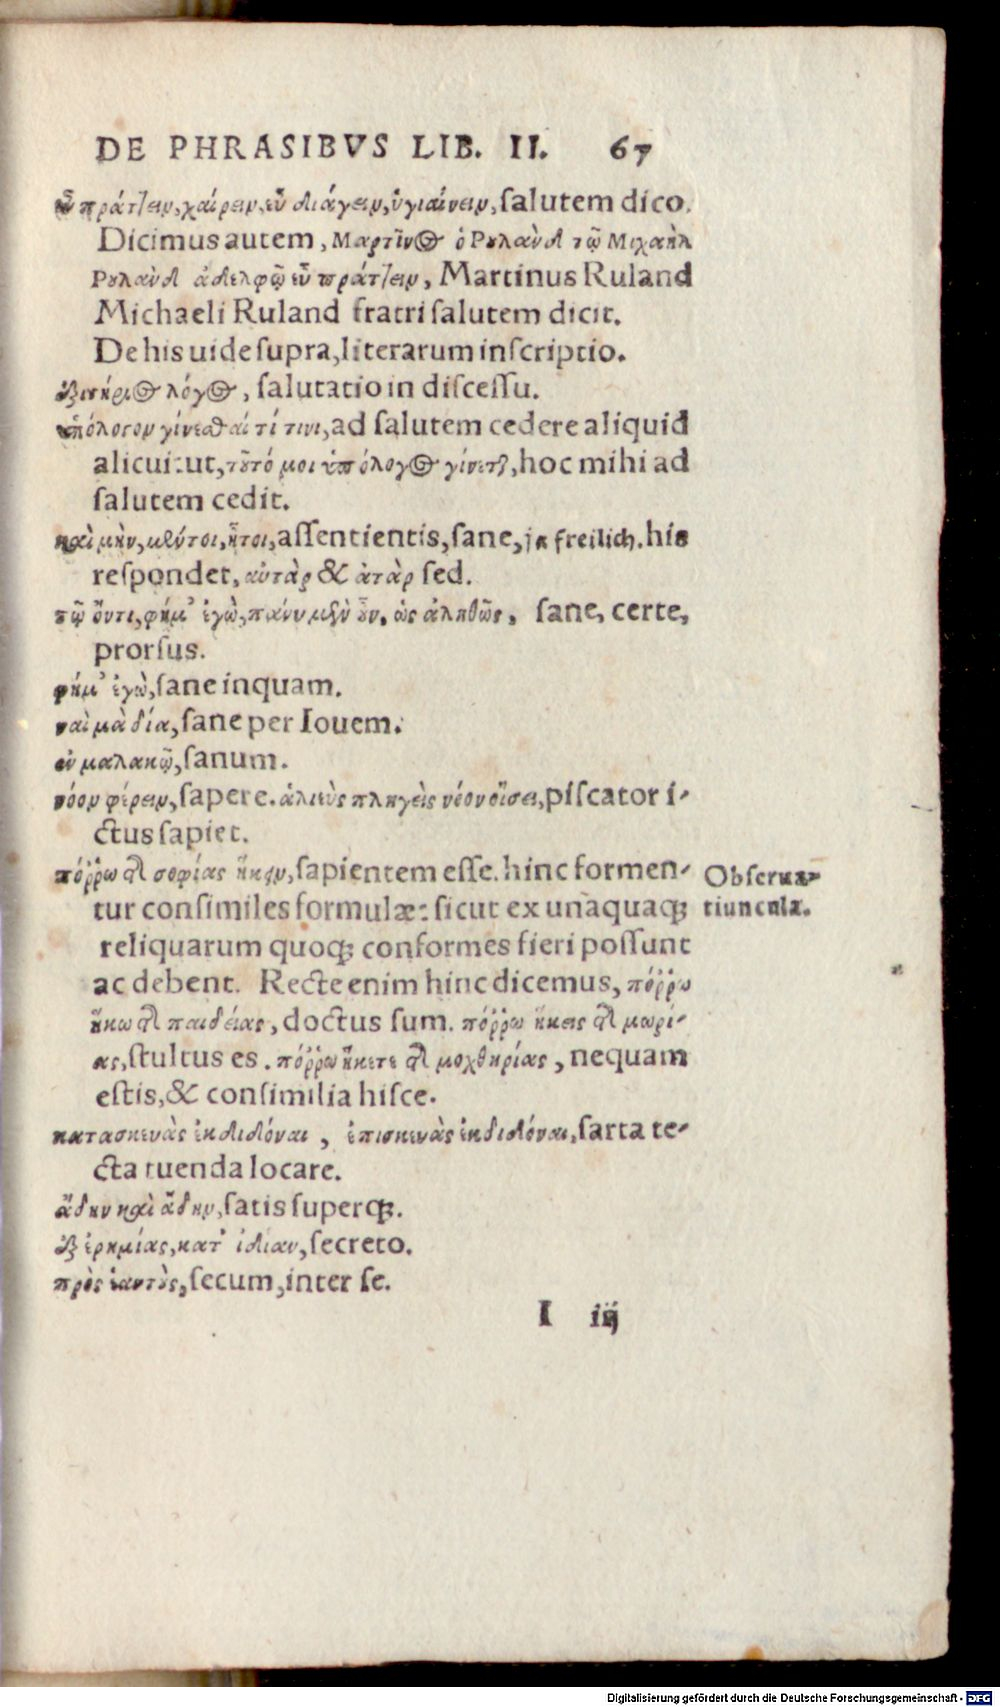 DE PHRASIBVS LIB. II. 67
εὖ πράττειν, χαίρειν, εὖ διάγειν, ὑγιαίνειν, salutem dico.
Dicimus autem, Μαρτῖνος ὁ Ρουλὰνδ τῷ Μιχαὴλ
Ρουλὰνδ ἀδελφῷ εὖ πράττειν, Martinus Ruland
Michaeli Ruland fratri salutem dicit.
De his uide supra, literarum inscriptio.
ἐξιτήριος λόγος, salutatio in discessu.
ὑπόλογον γίνεσθαί τί τινι, ad salutem cedere aliquid
alicui: ut, τοῦτό μοι ὑπόλογος γίνεται, hoc mihi ad
salutem cedit.
καὶ μὴν, μέντοι, ἤτοι, assentientis, sane, ja freilich. his
respondet, αὐτὰρ & ἀτὰρ sed.
τῷ ὄντι, φήμ' ἐγὼ, πάνυ μὲν οὖν, ὡς ἀληθῶς, sane, certe,
prorsus.
φήμ' ἐγὼ, sane inquam.
ναὶ μὰ δία, sane per Iouem.
ἐν μαλακῷ, sanum.
νόον φέρειν, sapere. ἁλιεὺς πληγεὶς νόον οἴσει, piscator i-
ctus sapiet.
πόῤῥω τῆς σοφίας ἥκειν, sapientem esse. hinc formen-
tur consimiles formulæ: sicut ex unaquaq;
reliquarum quoq; conformes fieri possunt
ac debent. Recte enim hinc dicemus, πόῤῥω
ἥκω τῆς παιδείας, doctus sum. πόῤῥω ἥκεις τῆς μωρί-
ας, stultus es. πόῤῥω ἥκετε τῆς μοχθηρίας, nequam
estis, & consimilia hisce.
Obserua-
tiuncula.
κατασκευὰς ἐκδιδόναι, ἐπισκευὰς ἐκδιδόναι, sarta te-
cta tuenda locare.
ἅδην καὶ ἅδην, satis superq;.
ἐξ ἐρημίας, κατ' ἰδίαν, secreto.
πρὸς ἑαυτοὺς, secum, inter se.
I iij
Digitalisierung gefördert durch die Deutsche Forschungsgemeinschaft - DFG